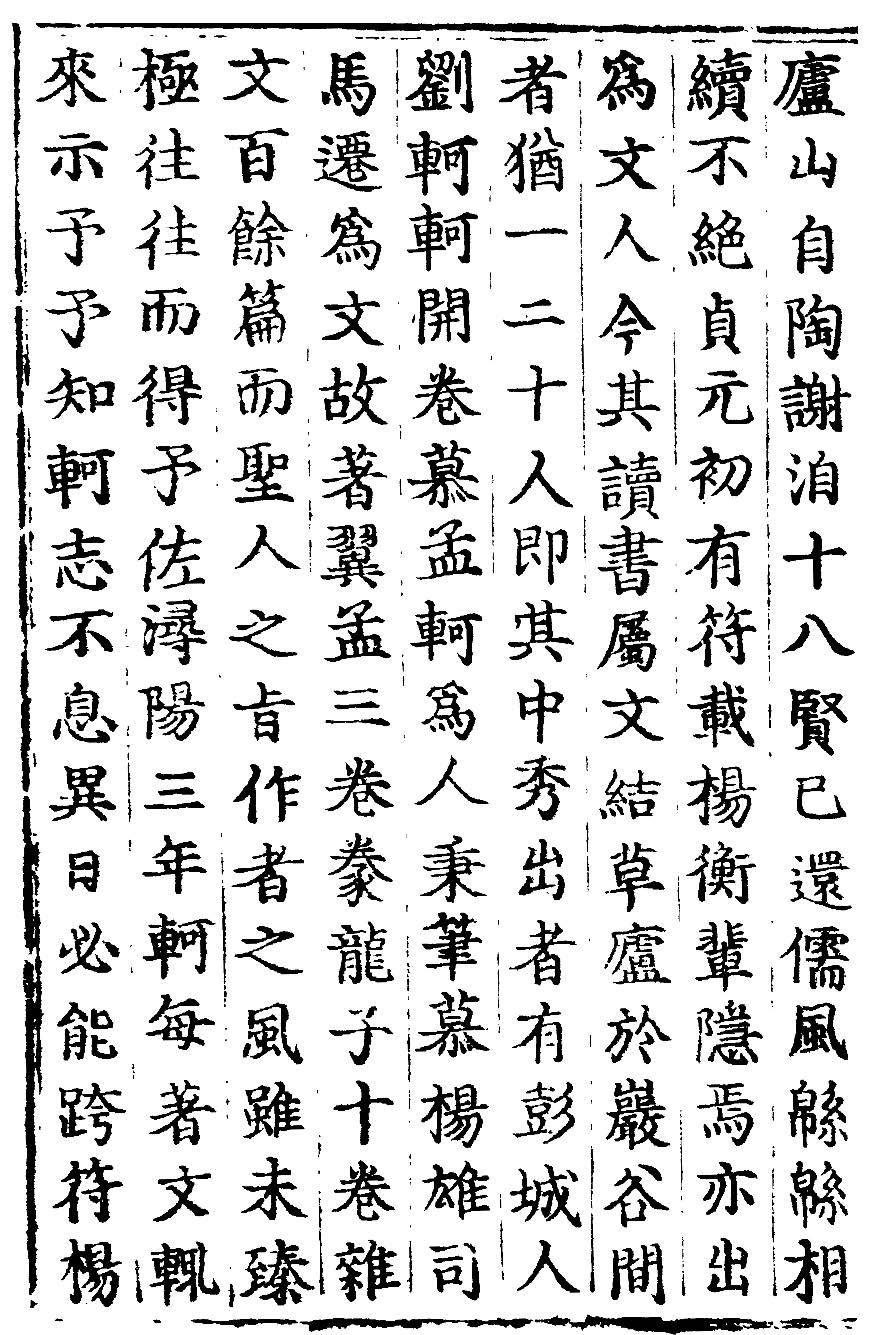 廬山自陶謝洎十八賢已還儒風緜緜相
續不絕貞元初有符載楊衡輩隱焉亦出
爲文人今其讀書屬文結草廬於巖谷間
者猶一二十人即其中秀出者有彭城人
劉軻軻開卷慕孟軻爲人秉筆慕楊雄司
馬遷爲文故著翼孟三卷豢龍子十卷雜
文百餘篇而聖人之旨作者之風雖未臻
極往往而得予佐潯陽三年軻每著文輒
來示予予知軻志不息異日必能跨符楊